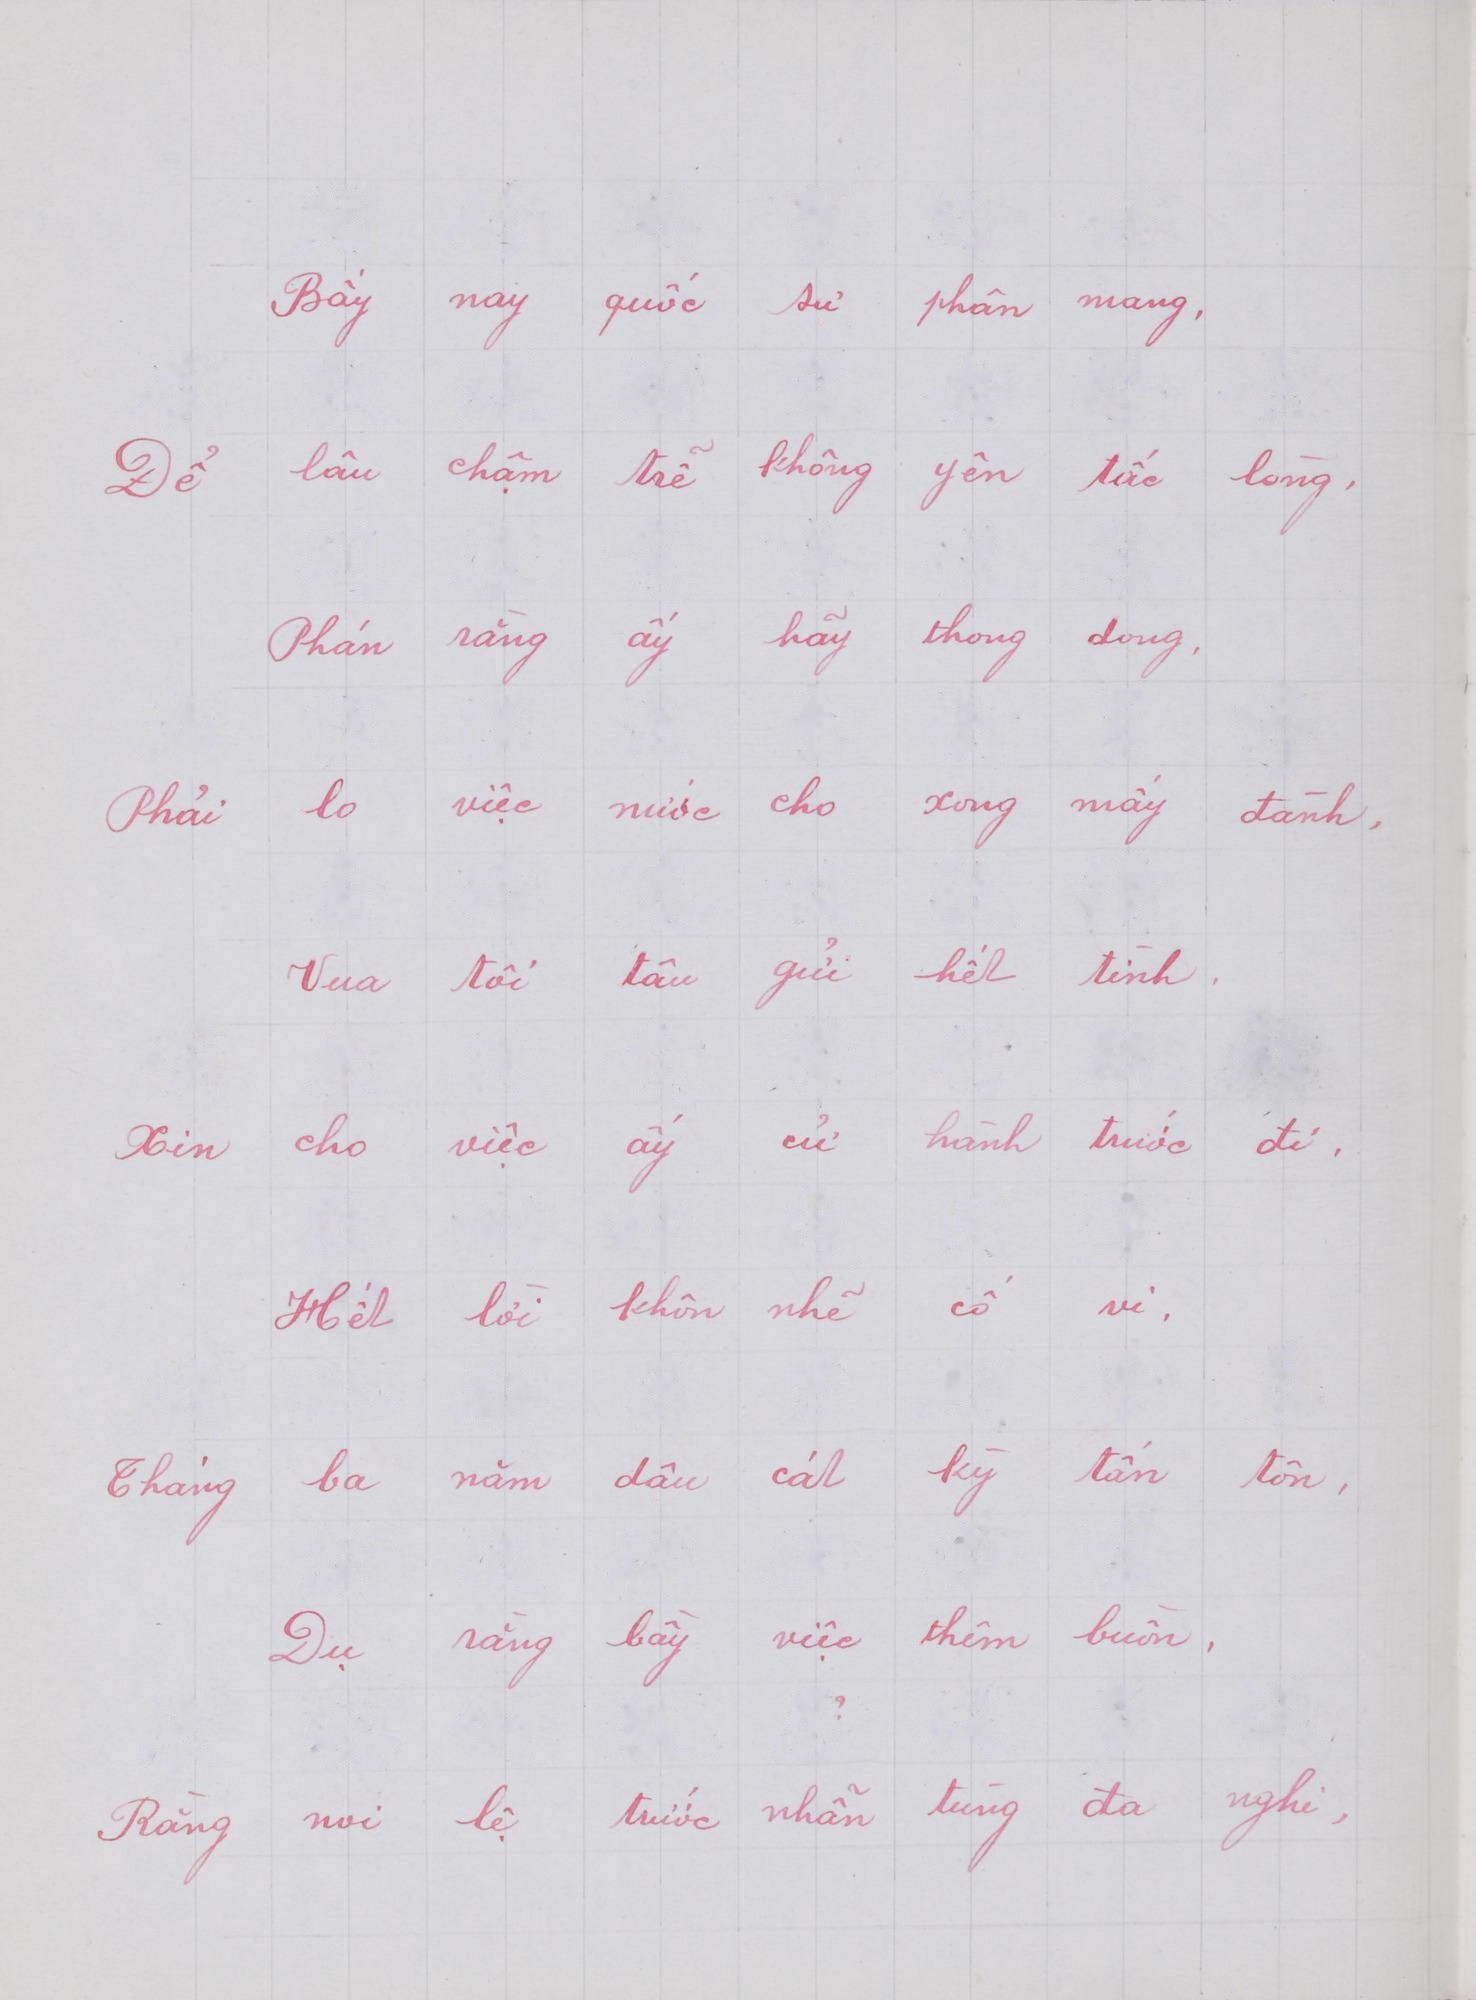 Bấy nay quốc sự phân mang,
Để lâu chậm trễ không yên tấc lòng,
Phán rằng ấy hãy thong dong,
Phải lo việc nước cho xong mấy đành,
Vua tôi tâu gửi hết tình,
Xin cho việc ấy cử hành trước đi,
Hết lời khôn nhẽ cố vi,
Tháng ba năm dậu cát kỳ tấn tôn,
Dụ rằng bầy việc thêm buồn,
?
Rằng noi lệ trước nhẫn tùng đa nghi,